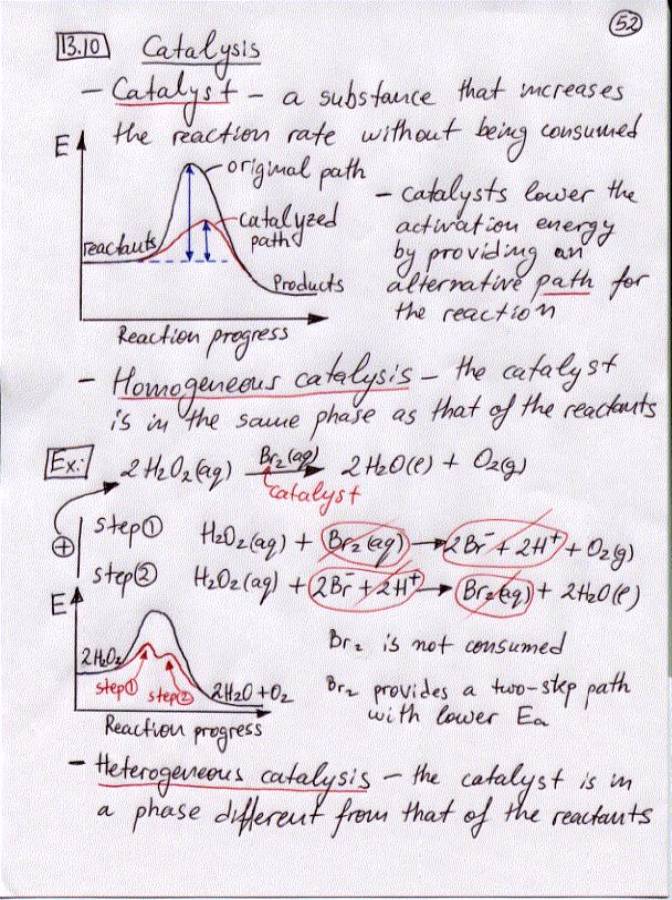 52
13.10 Catalysis
- Catalyst - a substance that increases
the reaction rate without being consumed
E
original path
catalyzed
path
reactants
Products
Reaction progress
- Catalysts lower the
activation energy
by providing an
alternative path for
the reaction
- Homogeneous catalysis - the catalyst
is in the same phase as that of the reactants
Ex: 2H₂O₂(aq) Br₂(aq)→ 2H₂O(l) + O₂(g)
catalyst
+
step① H₂O₂(aq) + Br₂(aq) → 2Br⁻ + 2H⁺ + O₂(g)
step② H₂O₂(aq) + 2Br⁻ + 2H⁺ → Br₂(aq) + 2H₂O(l)
E
2H₂O₂
step① step②
2H₂O + O₂
Reaction progress
Br₂ is not consumed
Br₂ provides a two-step path
with lower Ea
- Heterogeneous catalysis - the catalyst is in
a phase different from that of the reactants